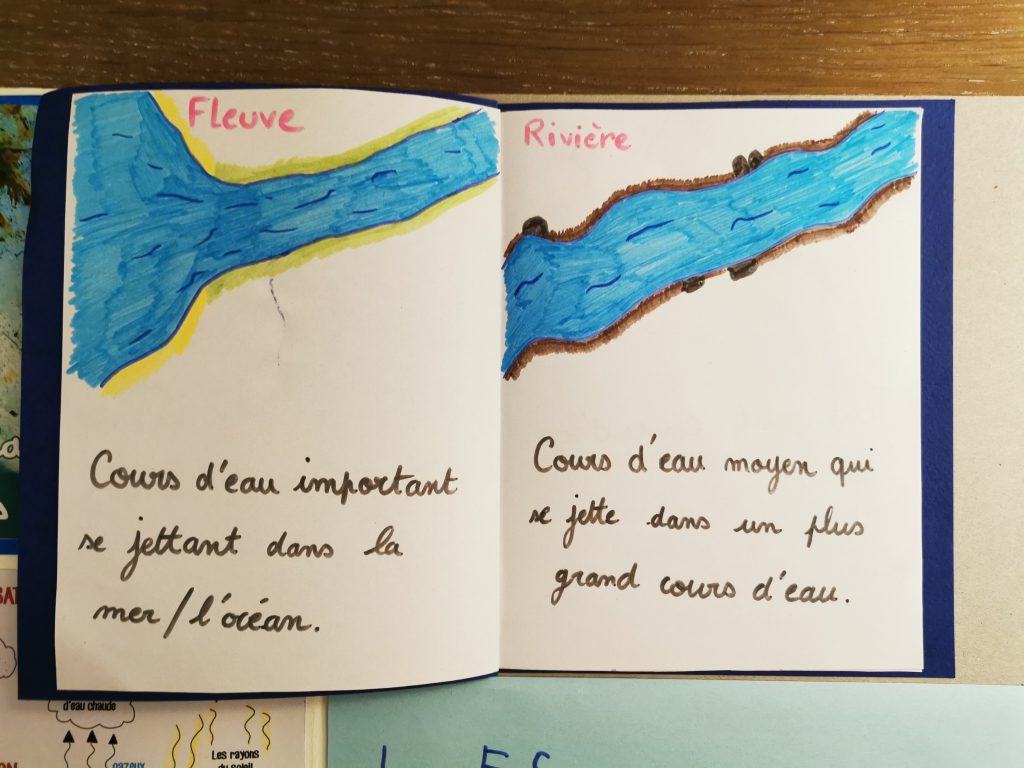 Fleuve
Cours d'eau important
se jettant dans la
mer/l'océan.
Rivière
Cours d'eau moyen qui
se jette dans un plus
grand cours d'eau.
d'eau chaude
Les rayons
du soleil